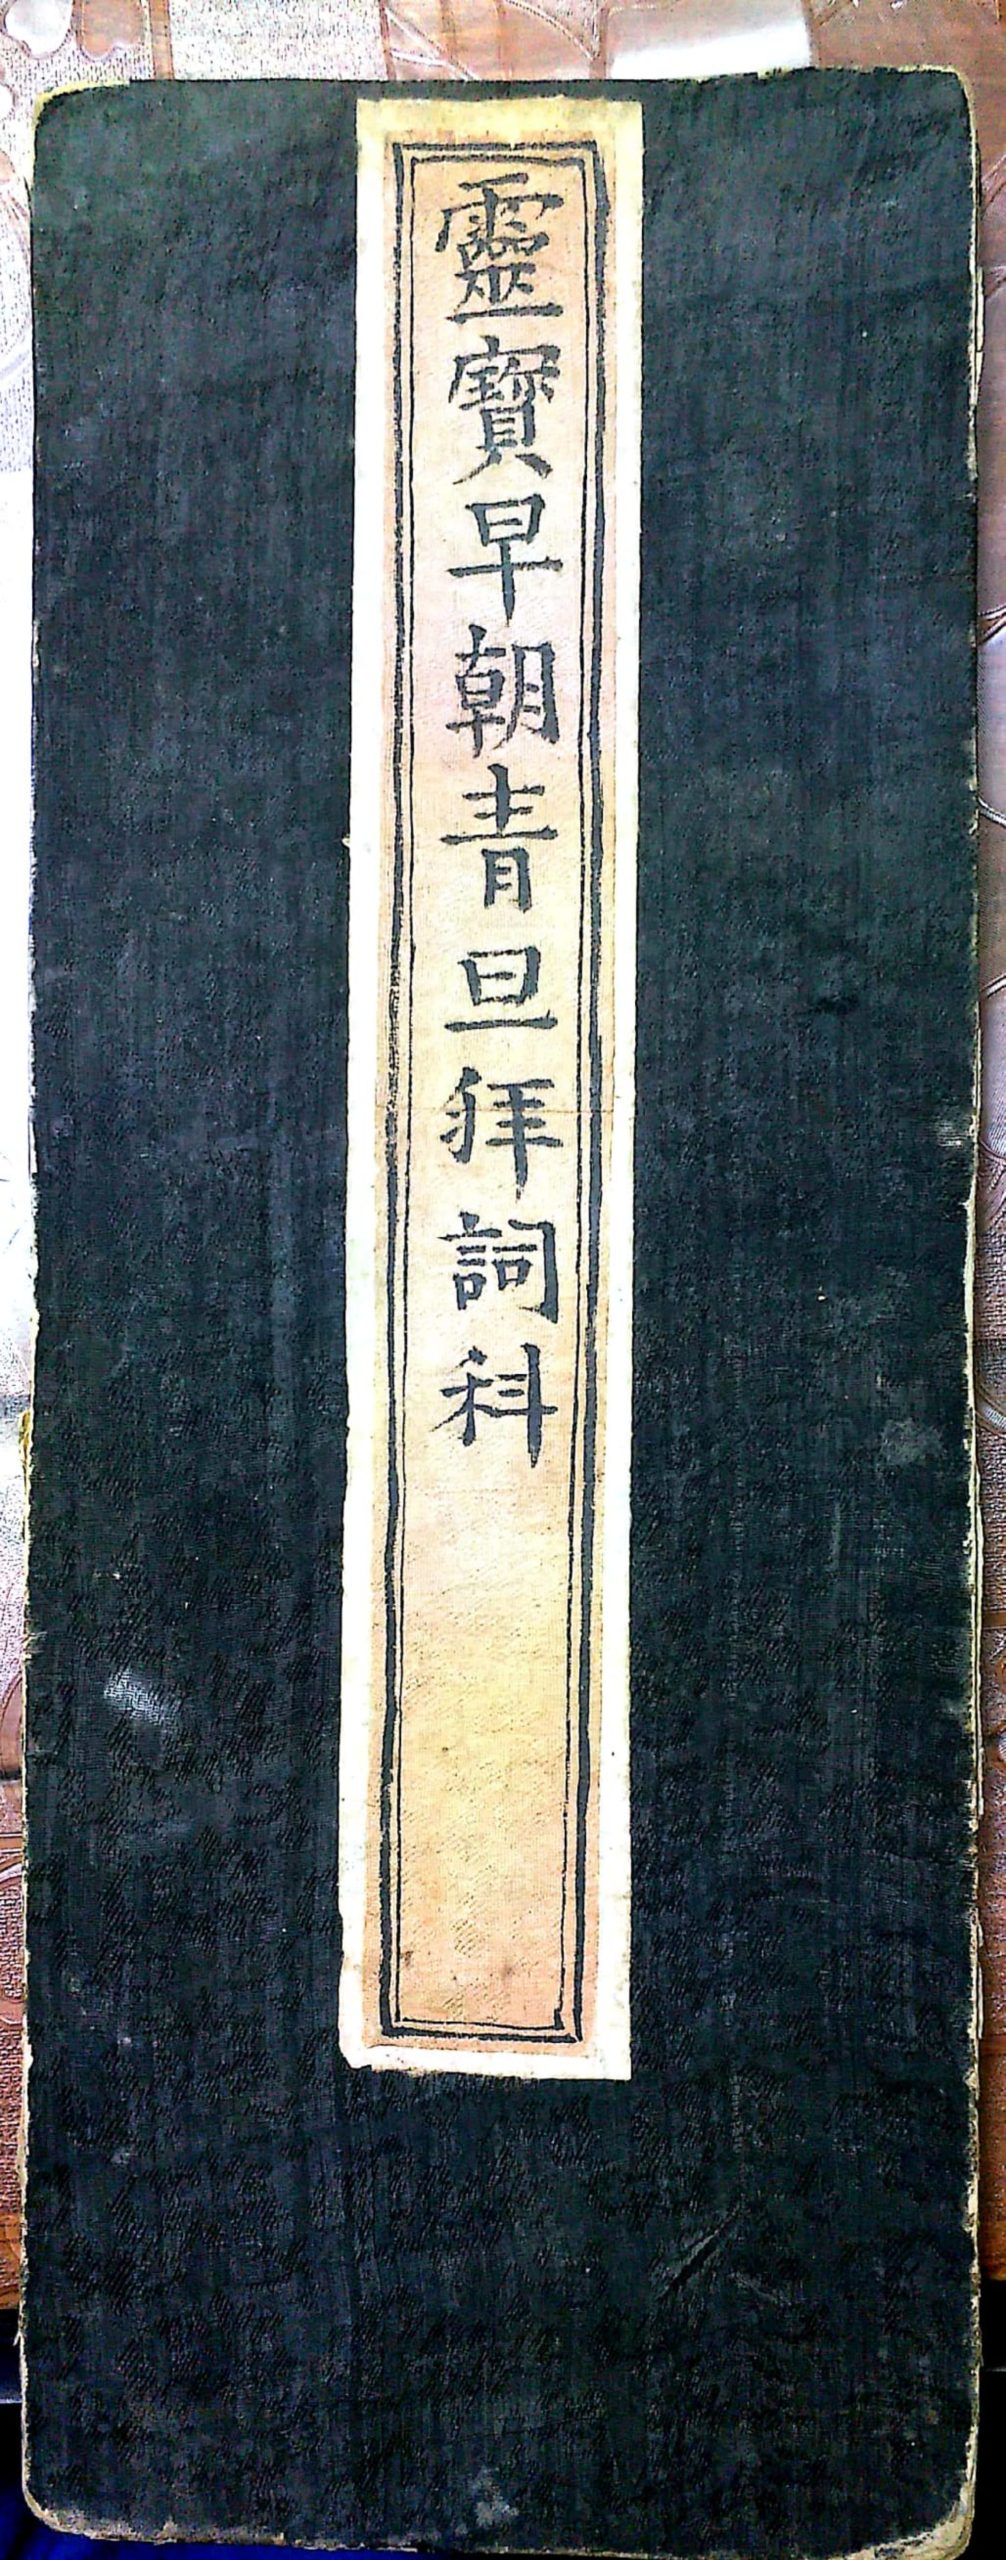 靈寳早朝青旦拜詞科